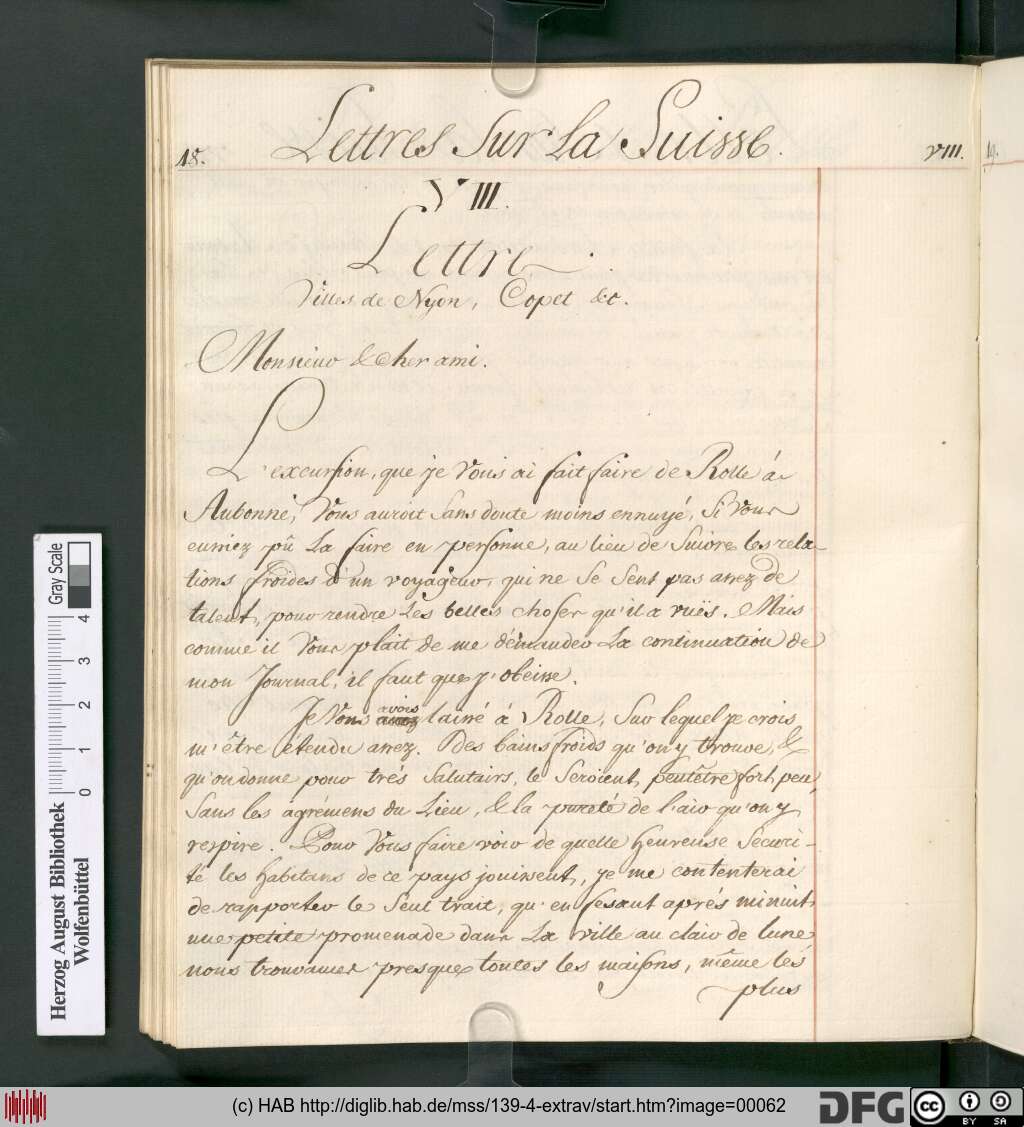 Lettres Sur La Suisse.
18.
VIII.
19.
VIII.
Lettre.
Villes de Nyon, Copet &c.
Monsieur & cher ami.
L'excursion, que je Vous ai fait faire de Rolle á
Aubonne, Vous auroit sans doute moins ennuyé, si Vous
eussiez pû La faire en personne, au lieu de suivre les rela-
tions froides d'un voyageur, qui ne se sent pas assez de
talent, pour rendre Les belles choses qu'il a vuës. Mais
comme il Vous plait de me démander La continuation de
mon Journal, il faut que j'obeisse.
Je Vous avois laissé á Rolle, Sur lequel je crois
m'être étendu assez. Des bains froids qu'on y trouve, &
qu'on donne pour trés Salutairs, le Seroient, peutêtre fort peu,
Sans les agrémens du Lieu, & la pureté de l'air qu'on y
respire. Pour Vous faire voir de quelle heureuse Sécuri-
té les habitans de ce pays jouissent, je me contenterai
de rapporter le Seul trait, qu'en fesant aprés minuit
une petite promenade dans La ville au clair de lune
nous trouvames presque toutes les maisons, même les
plus
Herzog August Bibliothek
Wolfenbüttel
0 1 2 3 4
Gray Scale
(c) HAB http://diglib.hab.de/mss/139-4-extrav/start.htm?image=00062
DFG
cc
BY SA